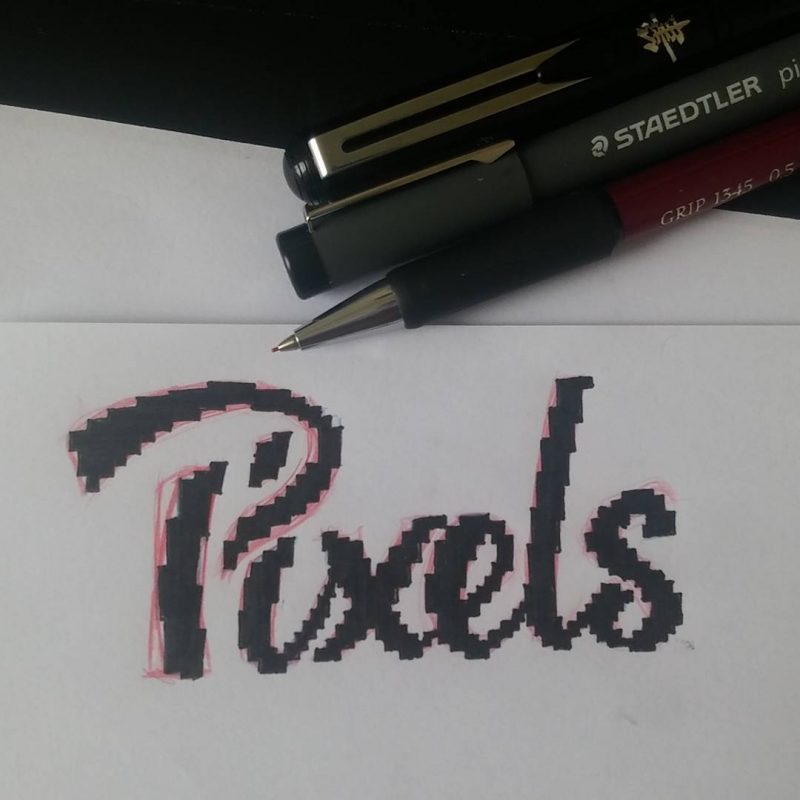 STAEDTLER pi
GRIP 1345 0.5
Pixels